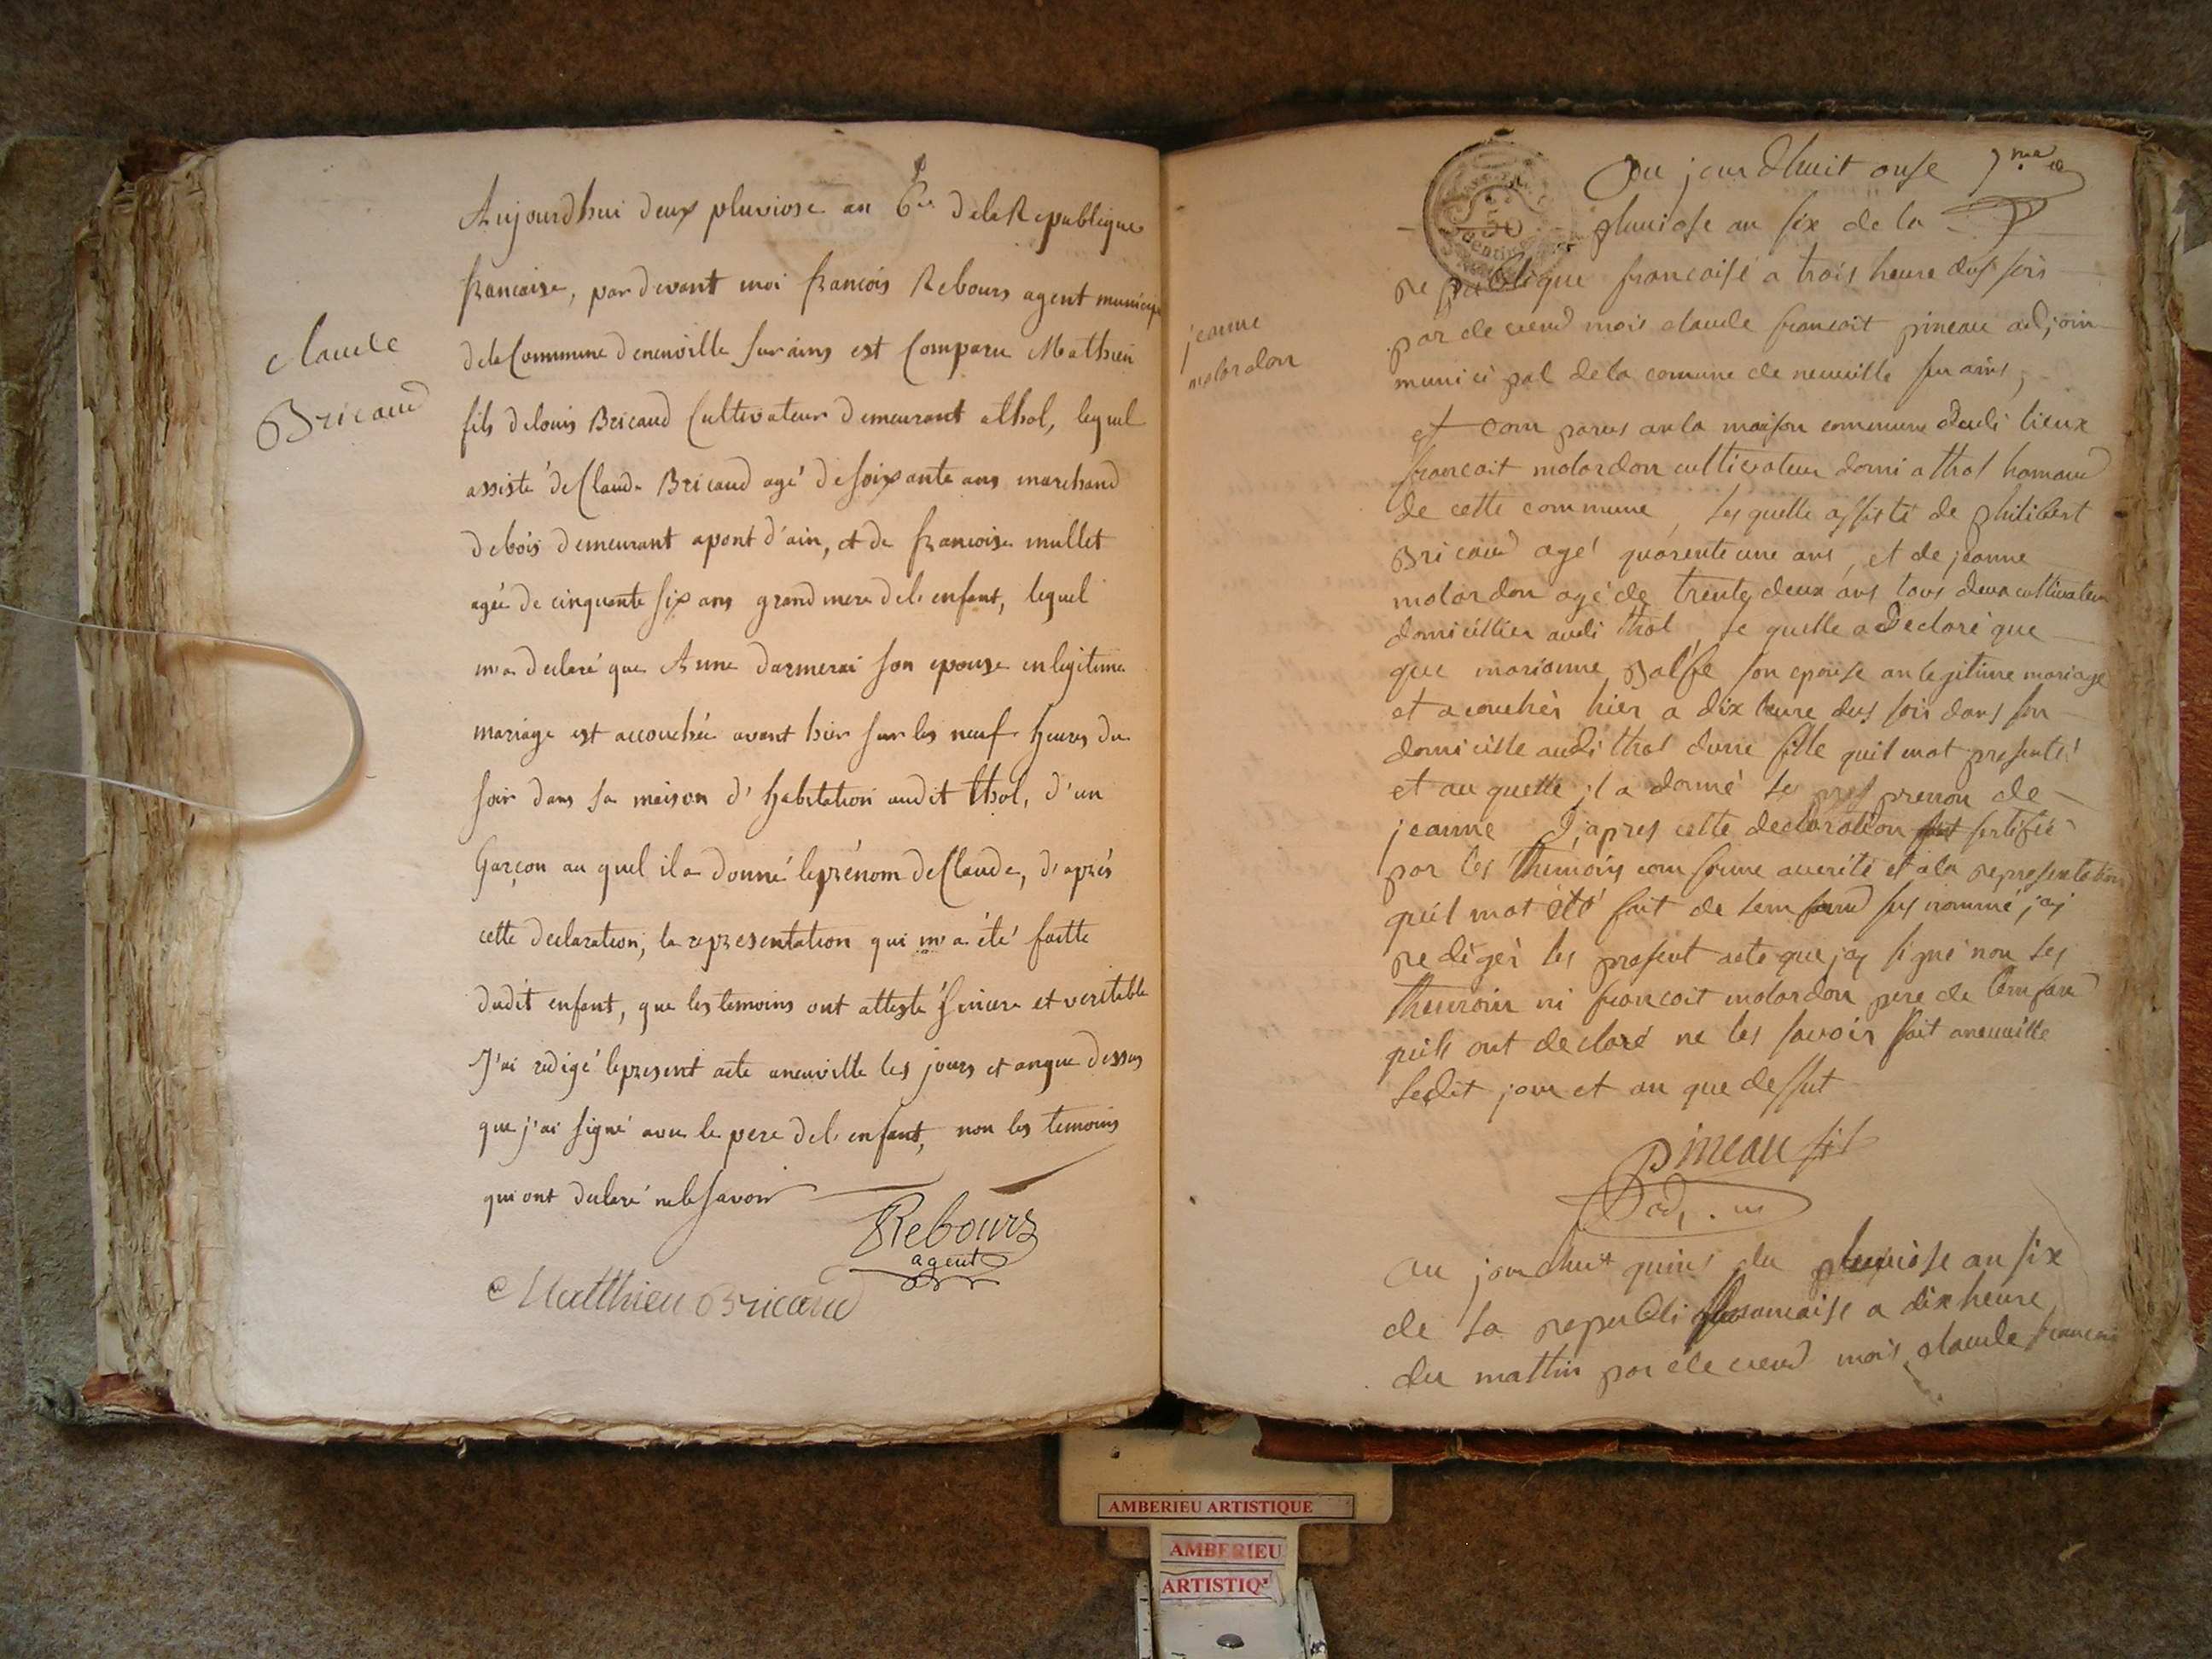 claude
Bricaud
Aujourdhui deux pluviose an 6e. dela Republique
francaise, par devant moi francois Rebours agent municip
dela Commune deneuville sur ains est Comparu Mathieu
fils delouis Bricaud Cultivateur demeurant athol, lequel
assisté de Claude Bricaud agé desoixante ans marchand
debois demeurant apont d'ain, et de francoise mullet
agée de cinquante six ans grand mere del'enfant, lequel
m'a declaré que Anne darmerai son epouse en legitime
mariage est accouchée avant hier sur les neuf heures du
soir dans sa maison d'habitation audit thol, d'un
Garçon au quel il a donné leprénom de Claude, d'aprés
cette declaration, la representation qui m'a été faitte
dudit enfant, que les temoins ont attesté sincere et veritable
J'ai redigé lepresent acte aneuville les jours et anque dessus
que j'ai signé avec le pere del'enfant, non les temoins
qui ont declaré nele savoir
Rebours
agent
Matthieu Bricaud
jeanne
molardon
Ou jourdhuit onse 7me
pluviose an six de la
republique francaise a trois heure dus soir
par de vend mois claude francoit pineau adjoin
municipal dela comune de neuville sur ains,
et com parus anla maison commune dudi lieux
francoit molardon cultivateur domi athol hamaud
de cette commune, lesquelle assisté de philibert
Bricaud agé quarente une ans, et de jeanne
molardon agé de trente deux ans tous deux cultivateur
domicillier audi thol, le quelle a declaré que
que marianne son epouse an legitime mariage
et acouchér hier a dix heure dus soir dans son
domicille audi thol dune fille quil mat presenté
et au quelle il a donné le prenon de
jeanne D'apres cette declaration sertifié
par les themoins com forme averité et ala representation
quil mat été fait de lemfand sus nommé jaj
redigér les present acte que jaj signé non les
themoin ni francoit molardon pere de lemfand
quils ont declaré ne les savoir fait aneuville
ledit jour et an que dessut
pineau fils
adj. m
au jourdhuit quins du pluviose an six
de la republi francaise a dix heure
du mattin par de vend mois claude francois
AMBERIEU ARTISTIQUE
AMBERIEU
ARTISTIQ